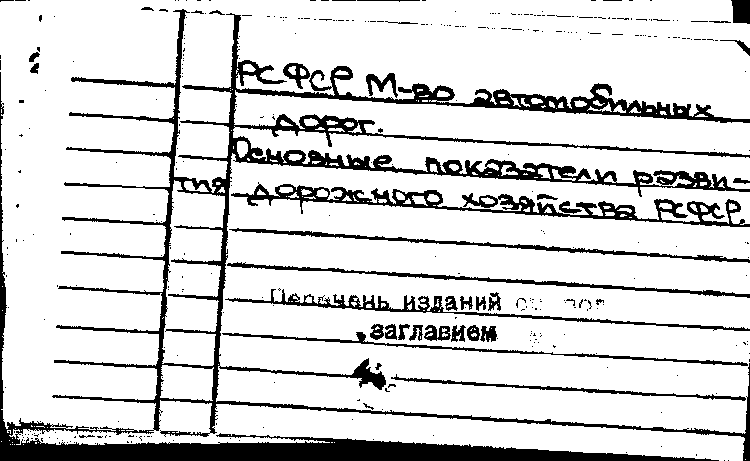 РСФСР. М-во автомобильных
дорог.
Основные показатели разви-
тия дорожного хозяйства РСФСР.
Перечень изданий см. под
заглавием